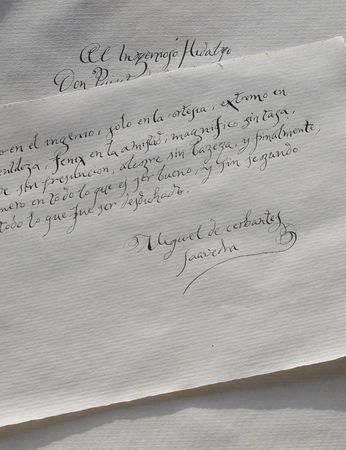 El Ingenioso Hidalgo
Don
en el ingenio, solo en la cortesia, extremo en
fenix en la amistad, magnifico sin tasa,
sin presuncion, alegre sin bageza, y finalmente,
en todo lo que es ser bueno, y sin segundo
todo lo que fue ser desdichado.
Miguel de cerbantes
Saavedra